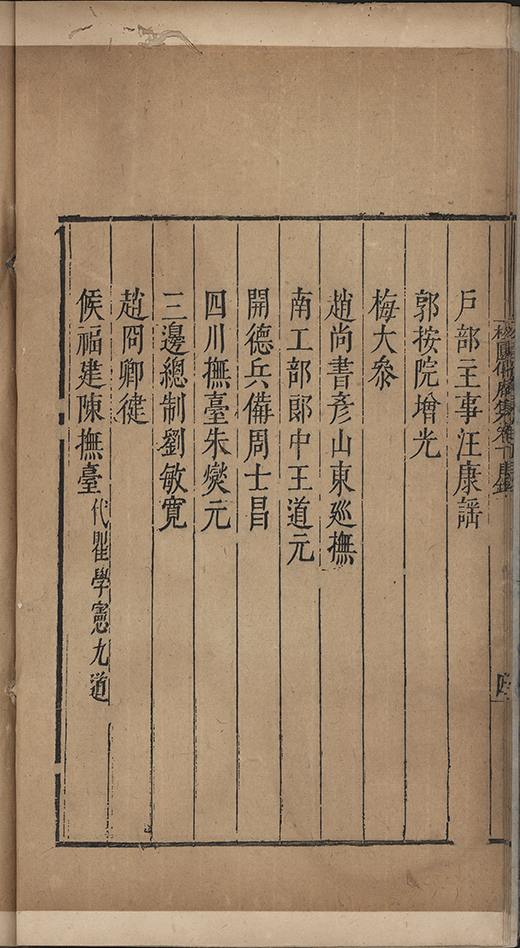 戶部主事汪康謠
郭按院增光
梅大叅
趙尚書彥山東廵撫
南工部郎中王道元
開德兵備周士昌
四川撫臺朱燮元
三邊總制劉敏寬
趙冏卿健
候福建陳撫臺代瞿學憲九道